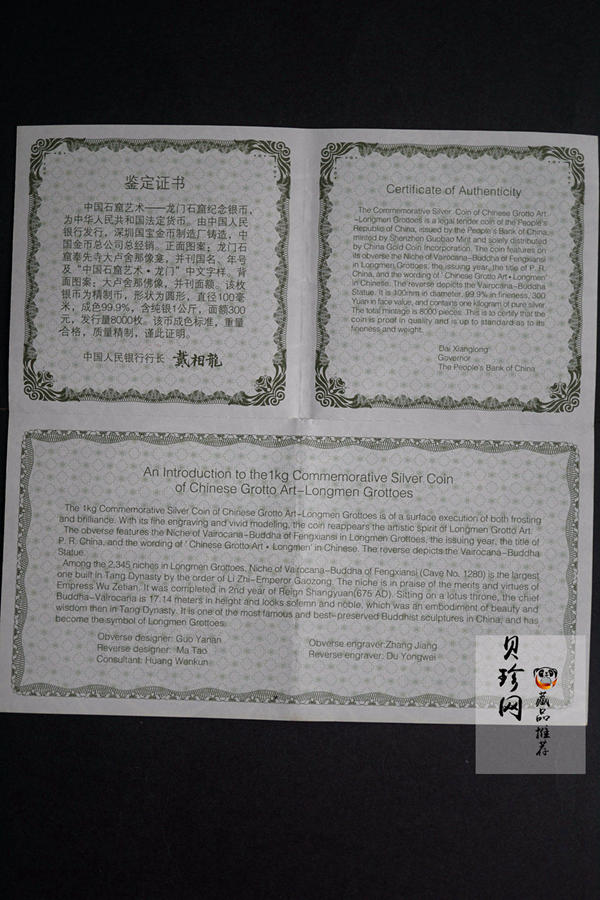 鉴定证书
中国石窟艺术——龙门石窟纪念银币，
为中华人民共和国法定货币。由中国人民
银行发行，深圳国宝金币制造厂铸造，中
国金币总公司总经销。正面图案：龙门石
窟奉先寺大卢舍那像龛，并刊国名、年号
及“中国石窟艺术·龙门”中文字样。背
面图案：大卢舍那佛像，并刊面额。该枚
银币为精制币，形状为圆形，直径100毫
米，成色99.9%，含纯银1公斤，面额300
元，发行量8000枚。该币成色标准，重量
合格，质量精制，谨此证明。
中国人民银行行长 戴相龙
Certificate of Authenticity
The Commemorative Silver Coin of Chinese Grotto Art
-Longmen Grottoes is a legal tender coin of the People's
Republic of China, issued by the People's Bank of China,
minted by Shenzhen Guobao Mint and solely distributed
by China Gold Coin Incorporation. The coin features on
its obverse the Niche of Vairocana-Buddha of Fengxiansi
in Longmen Grottoes, the issuing year, the title of P. R.
China, and the wording of 'Chinese Grotto Art•Longmen'
in Chinese. The reverse depicts the Vairocana-Buddha
Statue. It is 100mm in diameter, 99.9% in fineness, 300
Yuan in face value, and contains one kilogram of pure silver.
The total mintage is 8000 pieces. This is to certify that the
coin is proof in quality and is up to standard as to its
fineness and weight.
Dai Xianglong
Governor
The People's Bank of China
An Introduction to the 1kg Commemorative Silver Coin
of Chinese Grotto Art-Longmen Grottoes
The 1kg Commemorative Silver Coin of Chinese Grotto Art-Longmen Grottoes is of a surface execution of both frosting
and brilliance. With its fine engraving and vivid modeling, the coin reappears the artistic spirit of Longmen Grotto Art.
The obverse features the Niche of Vairocana-Buddha of Fengxiansi in Longmen Grottoes, the issuing year, the title of
P. R. China, and the wording of 'Chinese Grotto Art • Longmen' in Chinese. The reverse depicts the Vairocana-Buddha
Statue.
Among the 2,345 niches in Longmen Grottoes, Niche of Vairocana-Buddha of Fengxiansi (Cave No. 1280) is the largest
one built in Tang Dynasty by the order of Li Zhi-Emperor Gaozong. The niche is in praise of the merits and virtues of
Empress Wu Zetian. It was completed in 2nd year of Reign Shangyuan(675 AD). Sitting on a lotus throne, the chief
Buddha-Vairocana is 17.14 meters in height and looks solemn and noble, which was an embodiment of beauty and
wisdom then in Tang Dynasty. It is one of the most famous and best-preserved Buddhist sculptures in China, and has
become the symbol of Longmen Grottoes.
Obverse designer: Guo Yanan
Reverse designer: Ma Tao
Consultant: Huang Wenkun
Obverse engraver:Zhang Jiang
Reverse engraver: Du Yongwei
贝珍网
藏品推荐